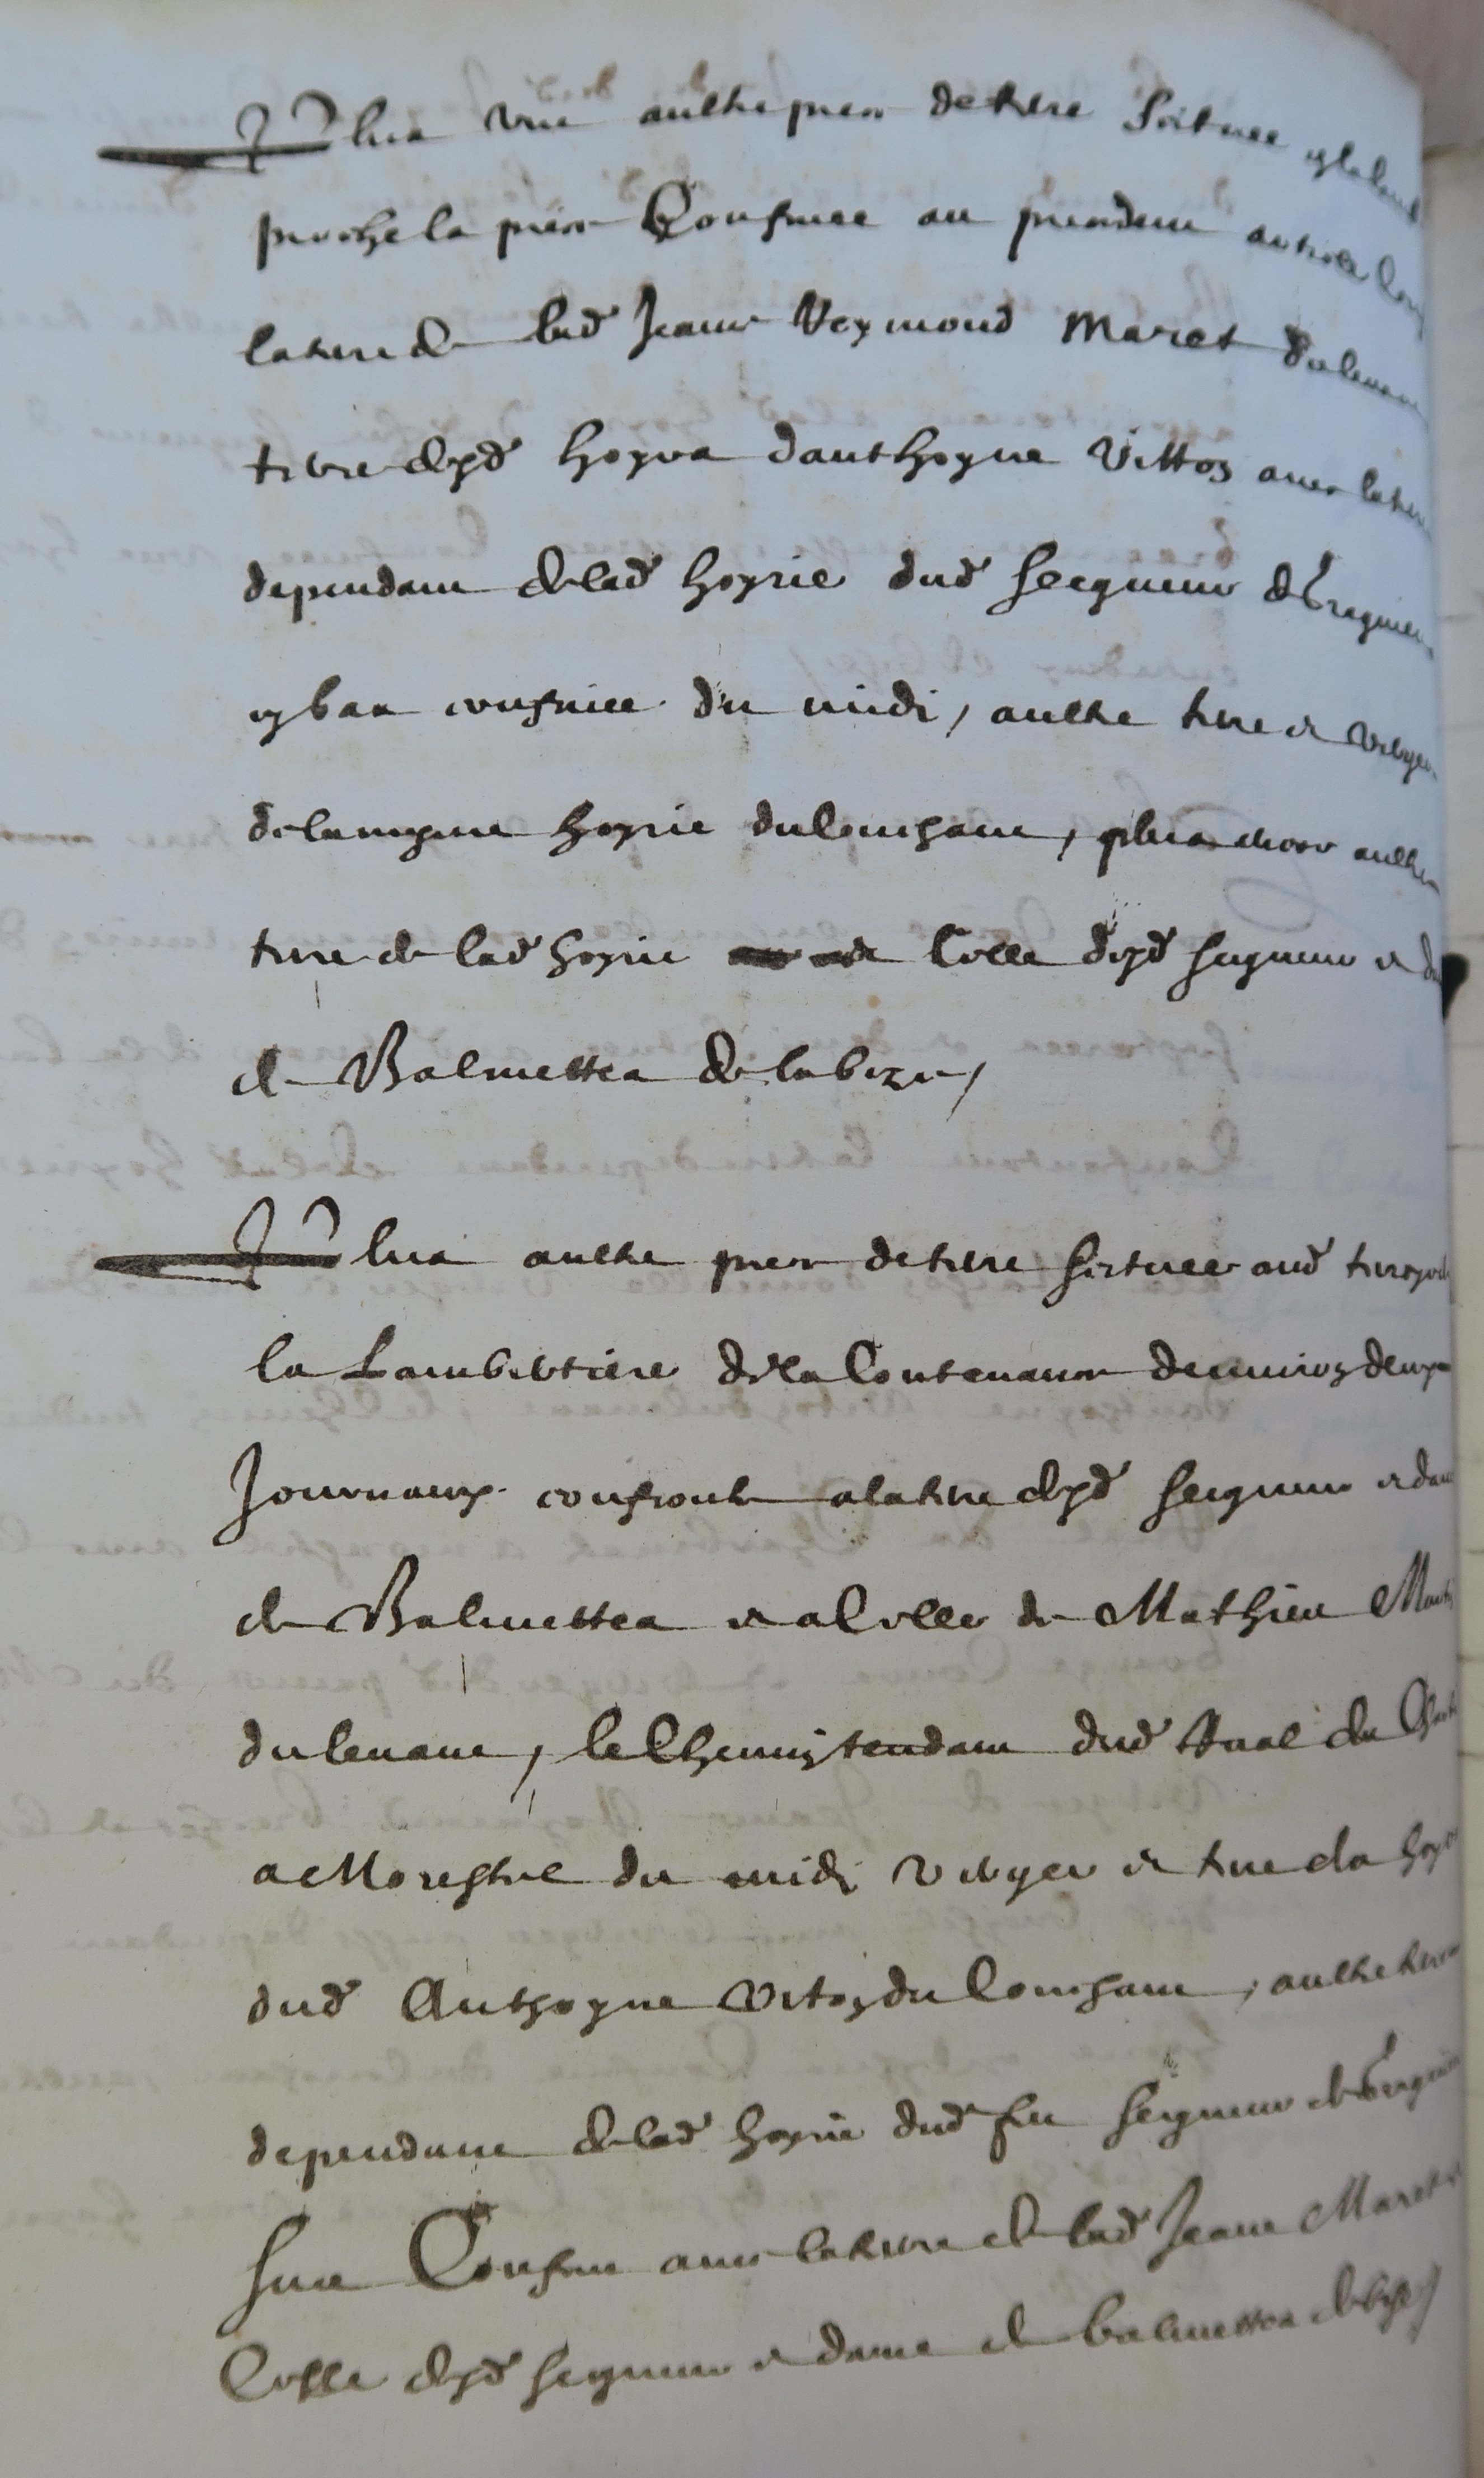 Plus une aultre piece de terre scituee
proche la piece Confinee au precedent article
la terre de lad Jeanne Veymond Maret du levant
terre desd hoyrs danthoyne Vittoz avec la terre
dependant de lad hoyrie dud seigneur
cy bas confinee du midi, aultre terre et verger
de la mesme hoyrie du Couchant, plus encor aultre
terre de lad hoyrie Celle desd seigneur et
de Balmettes de la bize,
Plus aultre piece de terre scituee aud terroyr
la Lambertiere de la Contenance denviron deux
Journaux confronte a la terre desd seigneur et dame
de Balmettes et a Celle de Mathieu
du levant, le Chemin tendant dud
a Morestel du midi verger et terre de la
dud Anthoyne Vitoz du Couchant, aultre terre
dependant de lad hoyrie dud feu seigneur
sera Confine avec la terre de lad Jeane Maret
Celle desd seigneur et dame de balmettes de bize